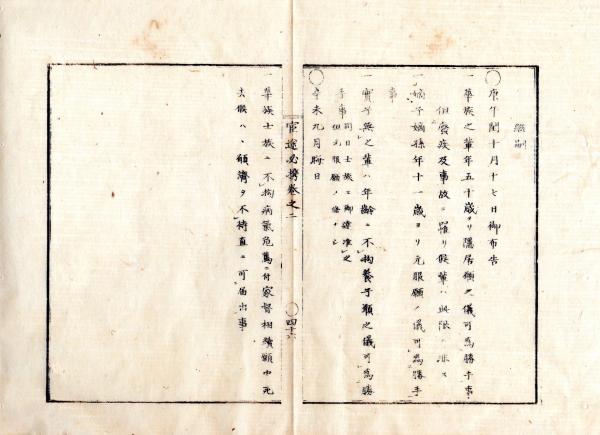 継嗣
○庚午閏十月十七日御布告
一華族之輩年五十歳ヨリ隠居願之儀可為勝手事
但実疾及事故ニ罹リ候輩ハ此限ニ非ス
一嫡子嫡孫年十一歳ヨリ元服願ノ儀可為勝手
事
一実子無之輩ハ年齢ニ不拘養子願之儀可為勝
手事
同日士族ニ御達准之
但元服願ノ條ナシ
○辛未九月晦日
官途必携巻之二
○四十六
一華族士族ニ不拘病気危篤ニ付家督相続願中死
去候ハヽ願済ヲ不待直ニ可届出事